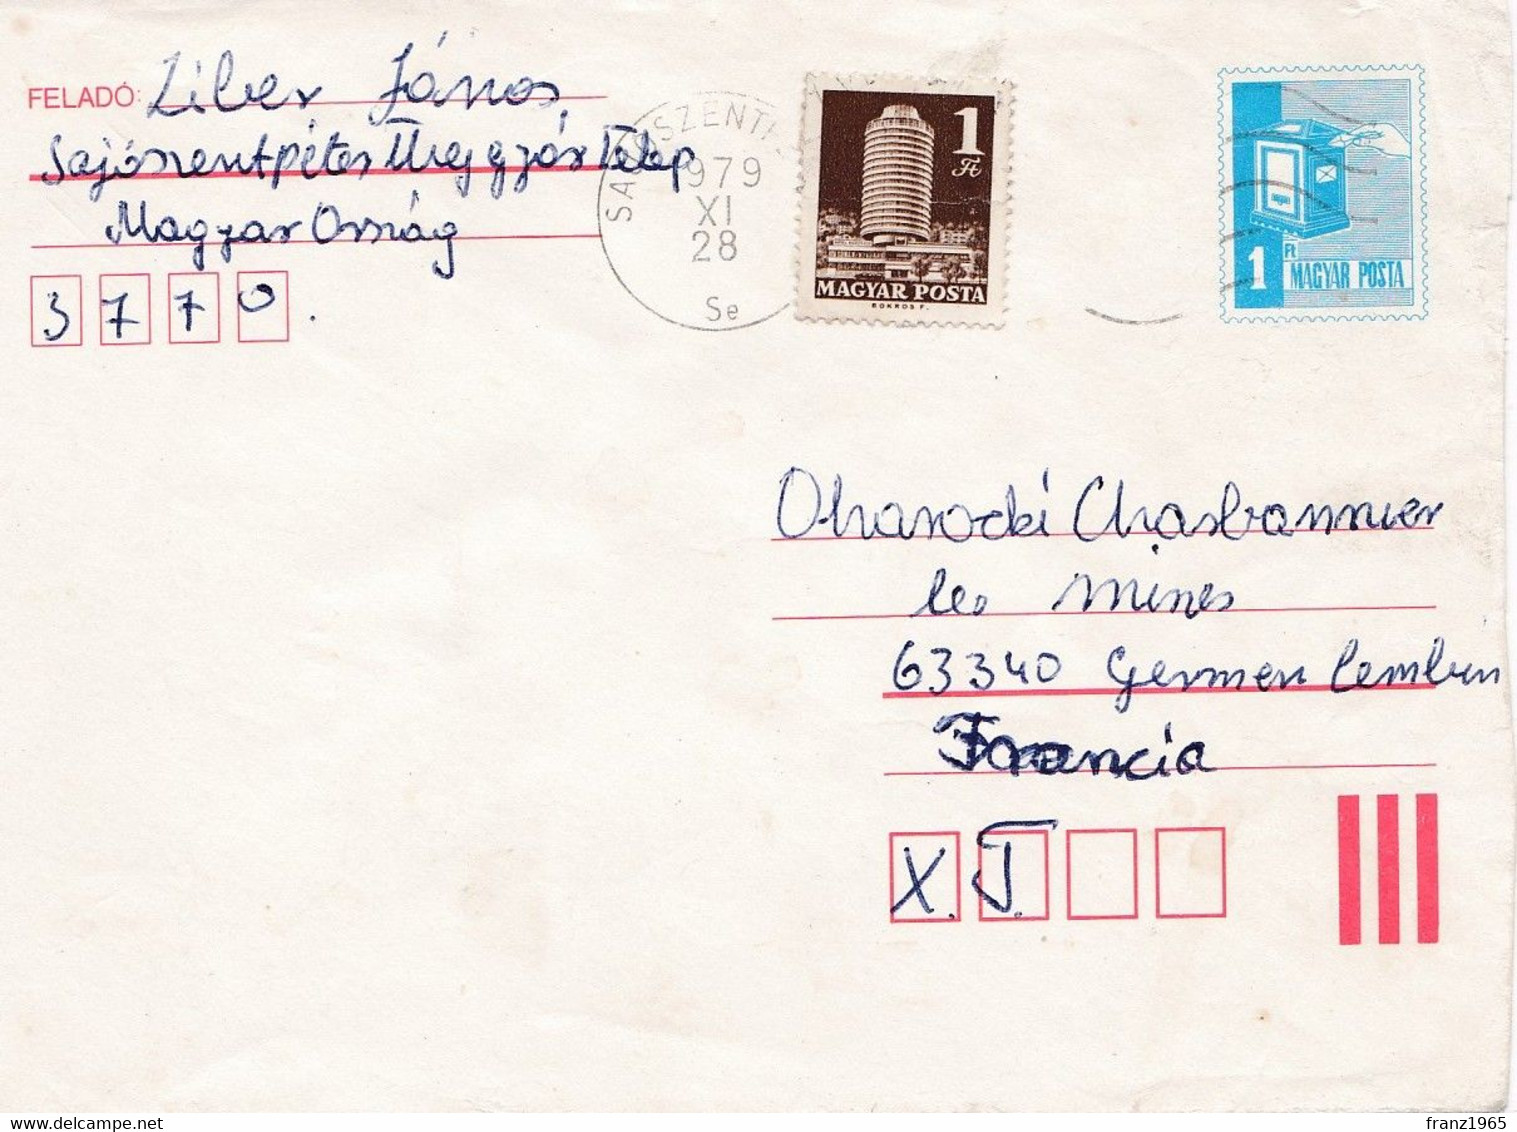 FELADÓ: Liber János
Sajószentpéter Üveggyár Telep
Magyar Ország
3770.
SAJÓSZENTP
1979
XI
28
Se
1
Ft
MAGYAR POSTA
BOKROS F.
1
Ft
MAGYAR POSTA
Oharocki Charbonnier
les mines
63340
Francia
X. T.
franz1965